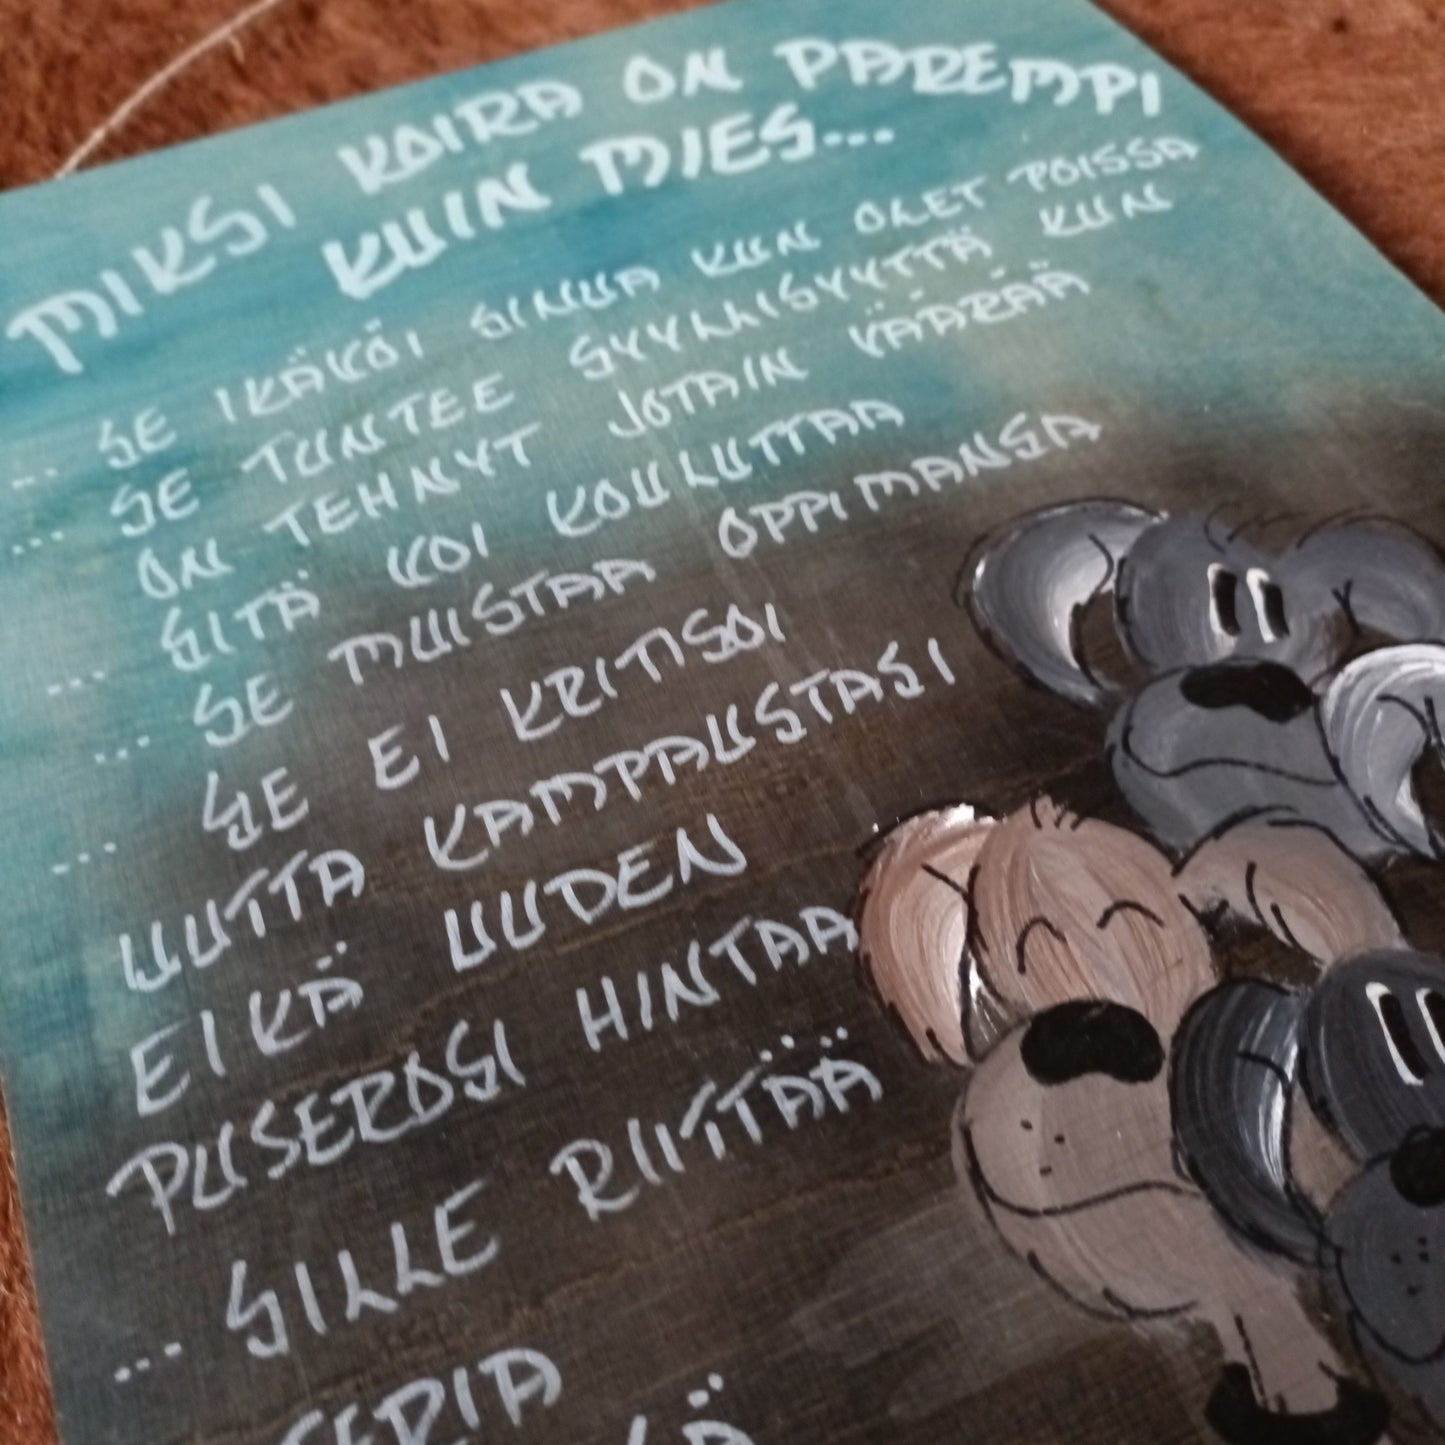 MIKSI KOIRA ON PAREMPI
KUIN MIES...
... SE IKÄKÖI SINUA KUN OLET POISSA
... SE TUNTEE SYYLLISYYTTÄ KUN
ON TEHNYT JOTAIN VÄÄRÄÄ
... SITÄ KOI KOULUTTAA
... SE MUISTAA OPPIMANSA
... SE EI KRITISOI
UUTTA KAMPAUSTASI
EIKÄ UUDEN
PUSEROSI HINTAA
... SILLE RIITTÄÄ